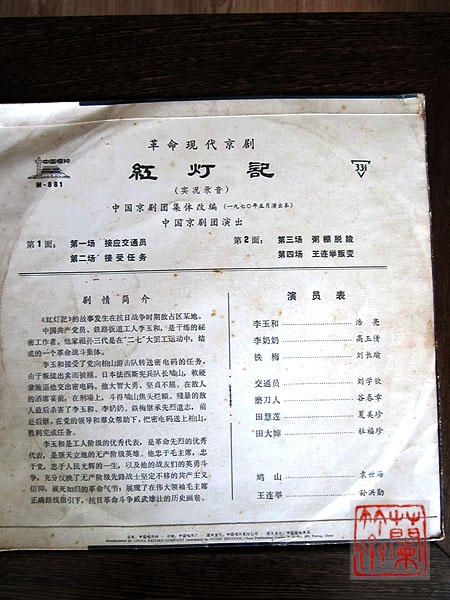 革命现代京剧
中国唱片
M-881
紅灯記
33⅓
(实况录音)
中国京剧团集体改编(一九七〇年五月演出本)
中国京剧团演出
第1面: 第一场 接应交通员
第二场 接受任务
第2面: 第三场 粥棚脱险
第四场 王连举叛变
剧情简介
《红灯记》的故事发生在抗日战争时期敌占区某地。
中国共产党党员、铁路扳道工人李玉和,是干练的秘
密工作者。他家祖孙三代是在“二七”大罢工运动中,结
成的一个革命战斗集体。
李玉和接受了党向柏山游击队转送密电码的任务,
由于叛徒出卖而被捕。日本法西斯宪兵队长鸠山,软硬
兼施逼他交出密电码。他大智大勇、坚贞不屈。在敌人
的酒席宴前,在刑场上,斗得鸠山焦头烂额。残暴的敌
人最后杀害了李玉和、李奶奶。铁梅继承先烈遗志,前
赴后继,在党的领导和群众帮助下,把密电码送上柏山,
胜利完成任务。
李玉和是工人阶级的优秀代表,是革命先烈的优秀
代表,是顶天立地的无产阶级英雄。他忠于毛主席,忠
于党,忠于人民光辉的一生,以及他的战友们的英勇斗
争,充分反映了无产阶级先锋战士坚定不移的共产主义
信仰,视死如归的革命气节;展现了在伟大领袖毛主席
正确路线指引下,抗日革命斗争威武雄壮的历史画卷。
演员表
李玉和 浩亮
李奶奶 高玉倩
铁梅 刘长瑜
交通员 刘学钦
磨刀人 谷春章
田慧莲 夏美珍
田大婶 杜福珍
鸠山 袁世海
王连举 孙洪勋